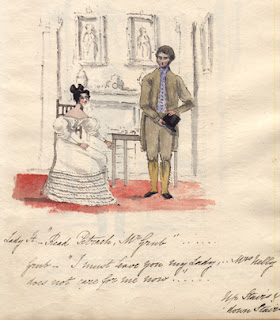 Lady H- "Read Petrach, Mr Grub" . . . . . .
Grub - "I must leave you my Lady, .. Mrs Kelly
does not care for me now" . . . . . .
Up Stairs &
down Stairs